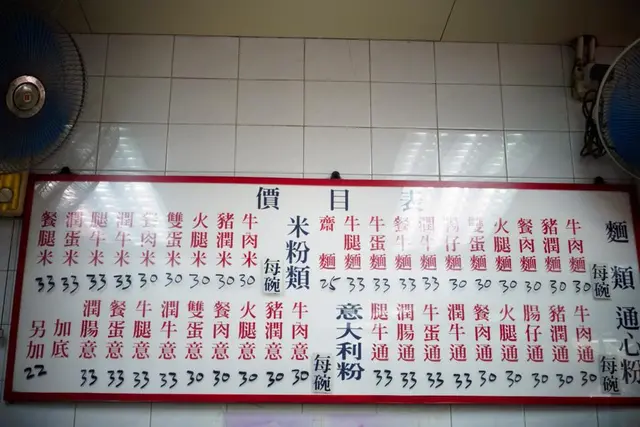 價目表
麵類
每碗
牛肉麵 30
豬潤麵 30
餐肉麵 30
火腿麵 30
雙蛋麵 30
腸仔麵 30
潤牛麵 33
餐牛麵 33
牛蛋麵 33
牛腿麵 33
齋麵 25
米粉類
每碗
牛肉米 30
豬潤米 30
火腿米 30
雙蛋米 30
餐肉米 30
潤牛米 33
腿牛米 33
潤蛋米 33
餐腿米 33
通心粉
每碗
牛肉通 30
豬潤通 30
腸仔通 30
餐肉通 30
火腿通 30
潤牛通 33
牛蛋通 33
潤腸通 33
腿牛通 33
意大利粉
每碗
牛肉意 30
豬潤意 30
火腿意 30
餐肉意 30
雙蛋意 30
潤牛意 33
牛腿意 33
餐蛋意 33
潤腸意 33
加底
另加 22